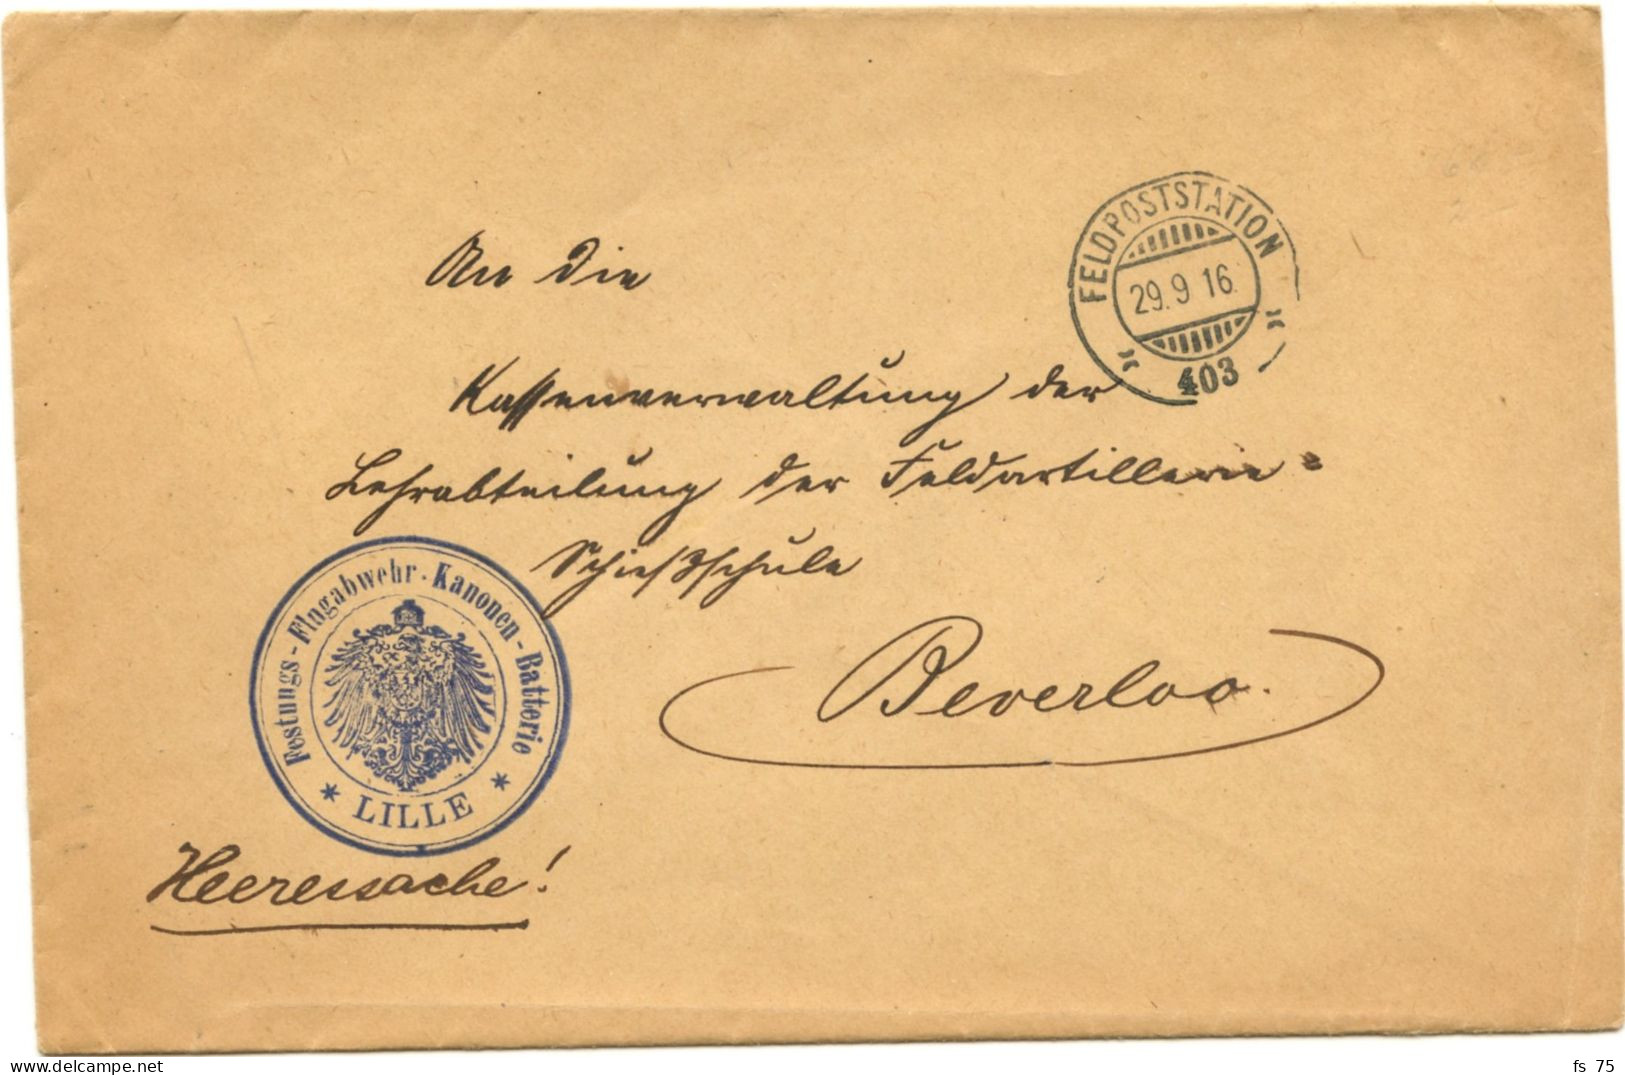 An die
FELDPOSTSTATION
29.9 16.
403
Kassenverwaltung der
Lehrabteilung der Feldartillerie=
Schießschule
Beverloo.
Festungs-Flugabwehr-Kanonen-Batterie
* LILLE *
Heeressache!
delcampe.net
fs_75